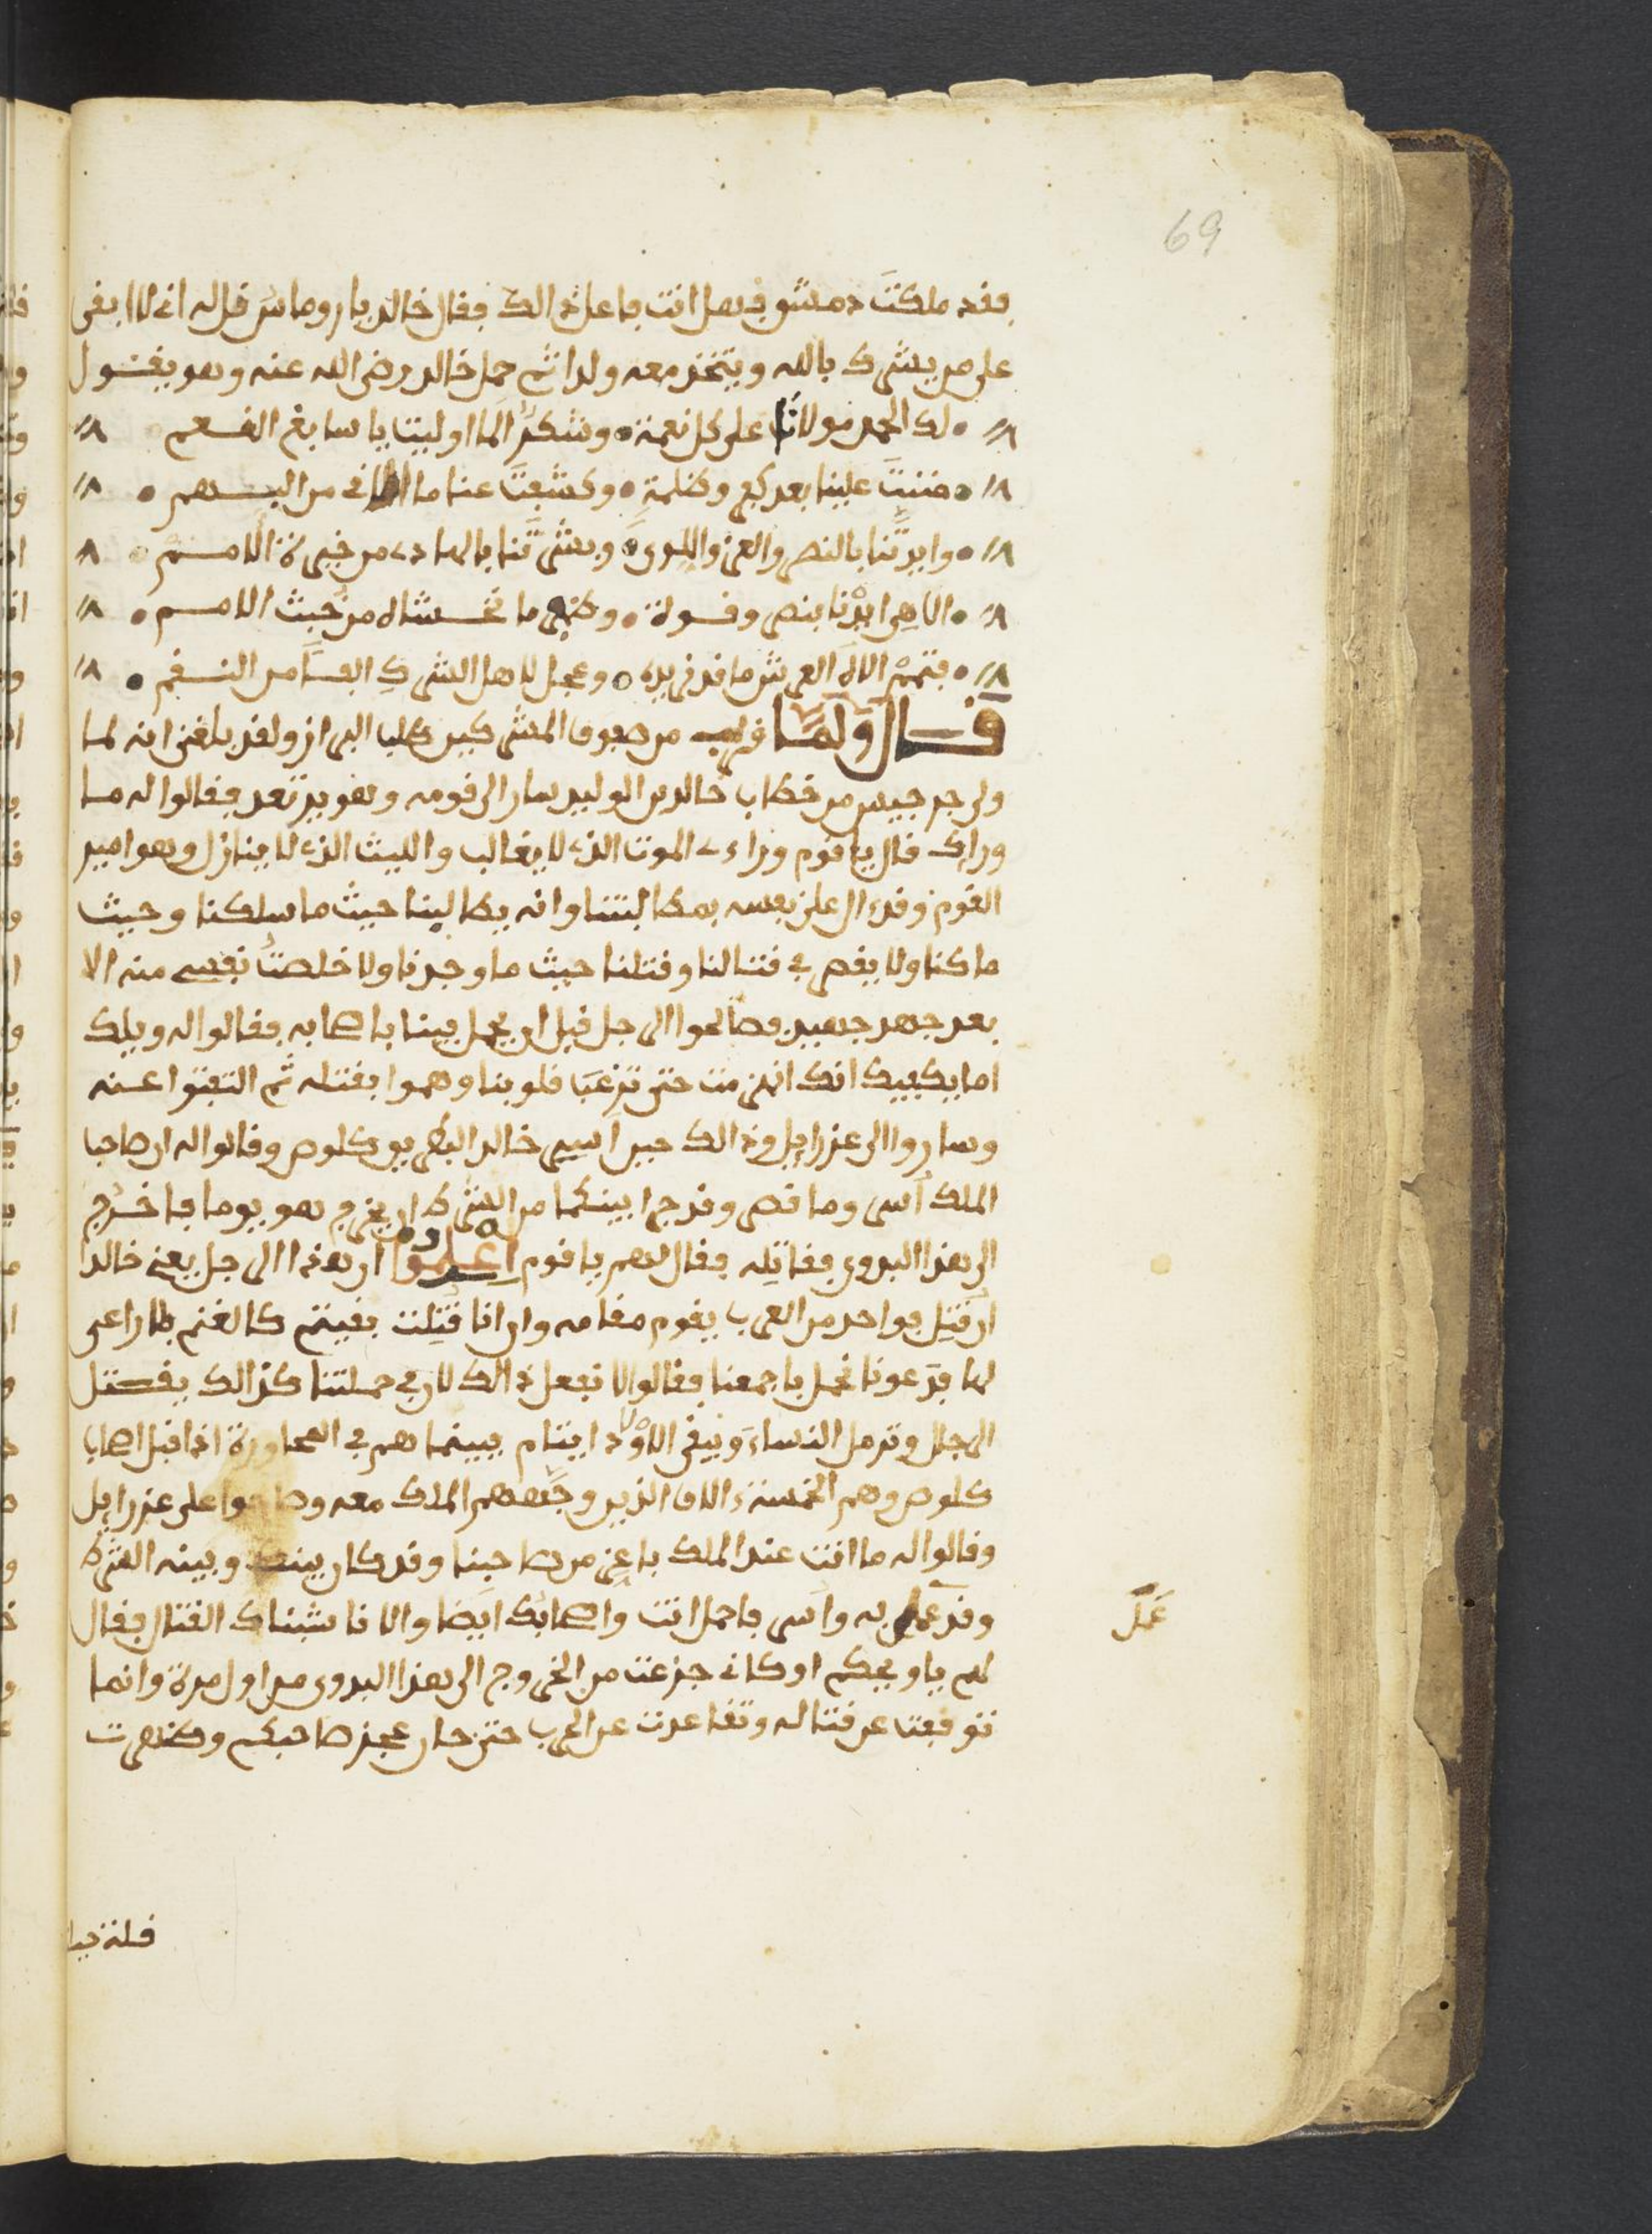 69
فقد ملكت دمشق فهل انت فاعل ذالك فقال خالد يا روماس قل له اني لا ابقي
على من يشرك بالله ويتخذ معه ولدا ثم حمل خالد رضي الله عنه وهو يقول
لك الحمد مولانا على كل نعمة وشكرا لما اوليت يا سابغ النعم
مننت علينا بعد كفر وظلمة وكشفت عنا ما من البهم
وايدتنا بالنصر والعز واللوى وبشرتنا بالهادي من خيرة الامم
الاهي ايدنا بنصر وقوة وطهر ما تخشاه من خبث الامم
فتمم الاه العرش ما قد نريده وعجل لاهل الشرك الفسا من النقم
قال ولما فرب من صفوف المشركين كلب البراز ولقد بلغني انه لما
ولى جرجيس من خطاب خالد بن الوليد سار الى قومه وهو يرتعد فقالوا له ما
وراك قال يا قوم وراءي الموت الذي لا يغالب والليث الذي لا ينازل وهو امير
القوم وقد الى على نفسه بمطالبتنا وانه يطالبنا حيث ما سلكنا وحيث
ما كنا ولا يقصر في قتالنا وقتلنا حيث ما وجدنا ولا خلصت نفسي منه الا
بعد جهد جهيد فصالحوا الرجل قبل ان يحمل فينا باصحابه فقالوا له ويلك
اما يكفيك انك انهزمت حتى ترغب قلوبنا وهموا بقتله ثم التفتوا عنه
وساروا الى عزرايل وذالك حين اسر خالد البطريق كلوص وقالوا له ان صاحبا
الملك اسر وما قصر وقد جرا بينكما من الشرط ان يخرج هو يوما فاخرج
الى هذا البدوي فقاتله فقال لهم يا قوم اعلموا ان هذا الرجل يعني خالدا
ان قتل فواحد من العرب يقوم مقامه وان انا قتلت بقيتم كالغنم بلا راعي
لها فدعونا نحمل باجمعنا فقالوا لا نفعل ذالك لان في حملتنا كذالك يقتل
الرجال وترمل النساء ويبقى الاولاد ايتام فبينما هم في المحاورة اذ اقبل اصحاب
كلوص وهم الخمسة الاف الذين وجههم الملك معه وصاحوا على عزرايل
وقالوا له ما انت عند الملك باعز من صاحبنا وقد كان بينك وبينه الشرط
وقد عمل به واسر فاحمل انت واصحابك ايضا والا ناشبناك القتال فقال
لهم يا ويحكم او كاني جزعت من الخروج الى هذا البدوي من اول مرة وانما
توقفت عن قتاله وتقاعدت عن الحرب حتى حان عجز صاحبكم وظهرت
عمل